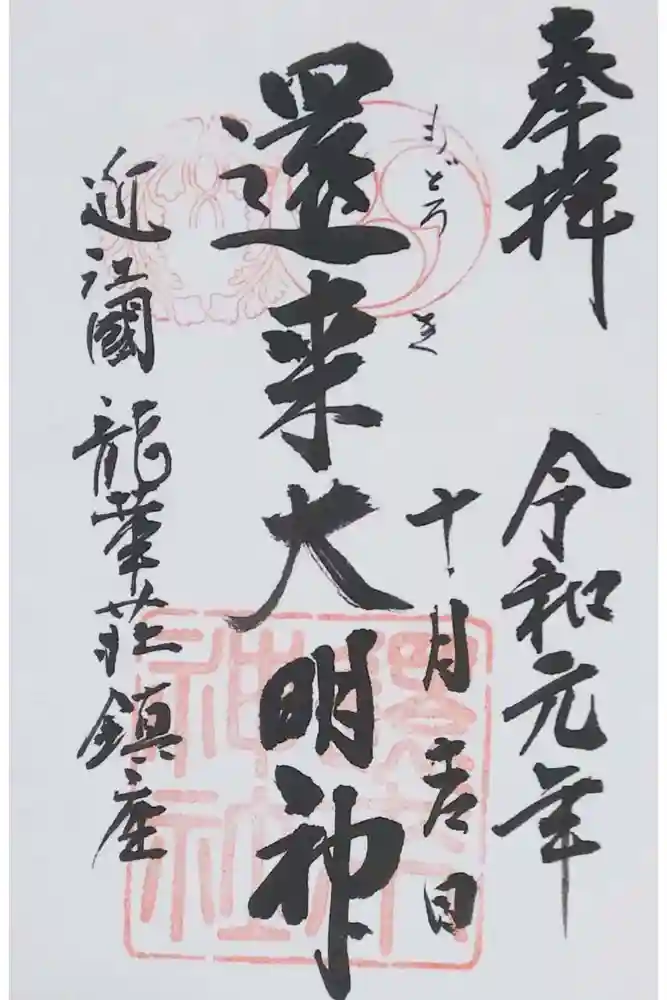 奉拝 令和元年
十月吉日
もどろき
還来大明神
近江國龍華荘鎮座
還来
神社